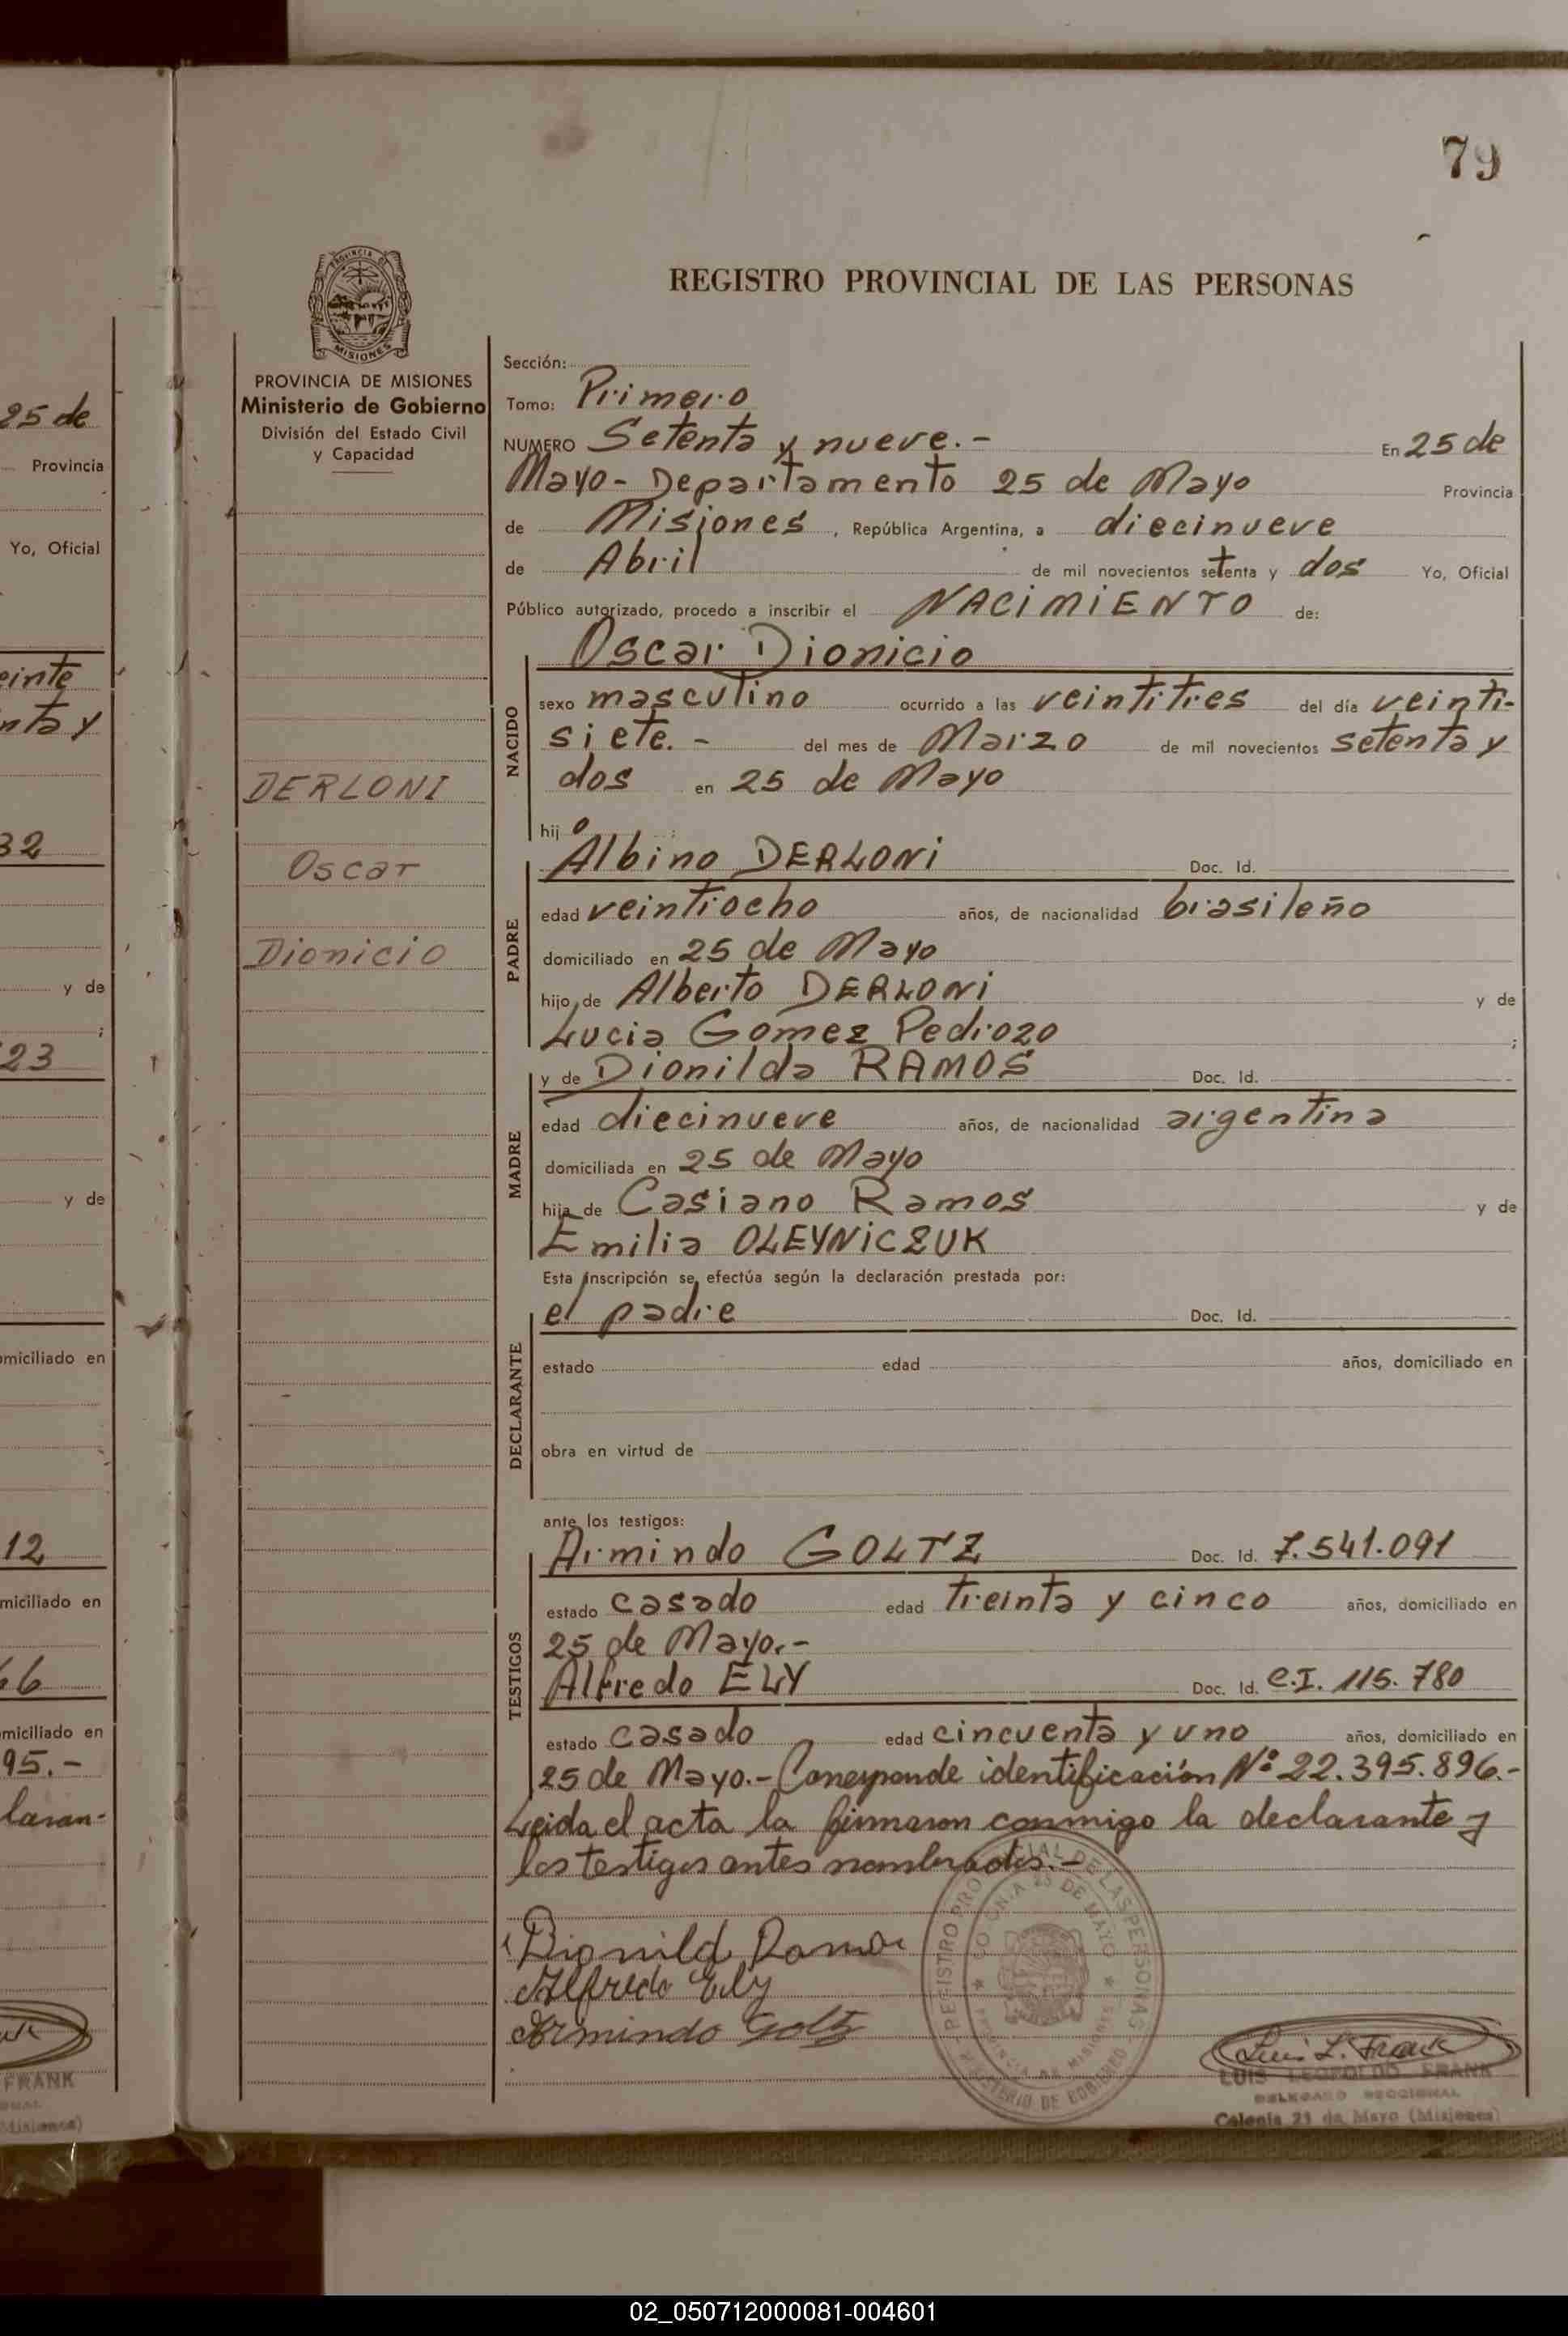 79
REGISTRO PROVINCIAL DE LAS PERSONAS
PROVINCIA DE
MISIONES
PROVINCIA DE MISIONES
Ministerio de Gobierno
División del Estado Civil
y Capacidad
DERLONI
Oscar
Dionicio
Sección:
Tomo: Primero
NUMERO Setenta y nueve.- En 25 de
Mayo- Departamento 25 de Mayo Provincia
de Misiones, República Argentina, a diecinueve
de Abril de mil novecientos setenta y dos Yo, Oficial
Público autorizado, procedo a inscribir el NACIMIENTO de:
Oscar Dionicio
NACIDO
sexo masculino ocurrido a las veintitres del día veinti-
siete.- del mes de Marzo de mil novecientos setenta y
dos en 25 de Mayo
hijo :
PADRE
Albino DERLONI Doc. Id.
edad veintiocho años, de nacionalidad brasileño
domiciliado en 25 de Mayo
hijo de Alberto DERLONI y de
Lucia Gomez Pedrozo ;
MADRE
y de Dionilda RAMOS Doc. Id.
edad diecinueve años, de nacionalidad argentina
domiciliada en 25 de Mayo
hija de Casiano Ramos y de
Emilia OLEYNICZUK
Esta inscripción se efectúa según la declaración prestada por:
DECLARANTE
el padre Doc. Id.
estado edad años, domiciliado en
obra en virtud de
ante los testigos:
TESTIGOS
Armindo GOLTZ Doc. Id. 7.541.091
estado casado edad treinta y cinco años, domiciliado en
25 de Mayo.-
Alfredo ELY Doc. Id. C.I. 115.780
estado casado edad cincuenta y uno años, domiciliado en
25 de Mayo.- Corresponde identificación Nº 22.395.896.-
Leida el acta la firmaron conmigo la declarante y
los testigos antes nombrados.-
Dionild Ramo
Alfredo Ely
Armindo Goltz
REGISTRO PROVINCIAL DE LAS PERSONAS
COLONIA 25 DE MAYO
PROVINCIA DE MISIONES
MINISTERIO DE GOBIERNO
Luis L. Frank
LUIS LEOPOLDO FRANK
DELEGADO SECCIONAL
Colonia 25 de Mayo (Misiones)
25 de
Provincia
Yo, Oficial
einte
nta y
32
y de
;
23
y de
omiciliado en
12
miciliado en
66
omiciliado en
95.-
laran-
FRANK
02_050712000081-004601